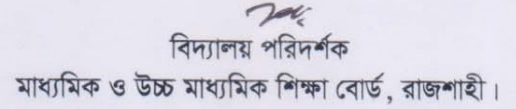 বিদ্যালয় পরিদর্শক
মাধ্যমিক ও উচ্চ মাধ্যমিক শিক্ষা বোর্ড, রাজশাহী।